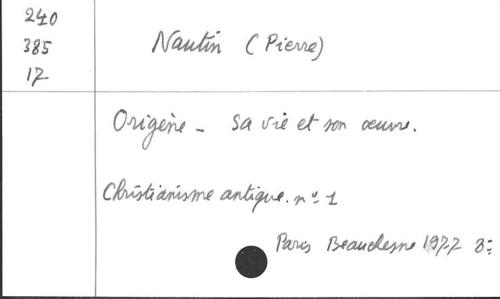 240
385
17
Nautin (Pierre)
Origène - Sa vie et son œuvre.
Christianisme antique. nº 1
Paris Beauchesne 1977 8º